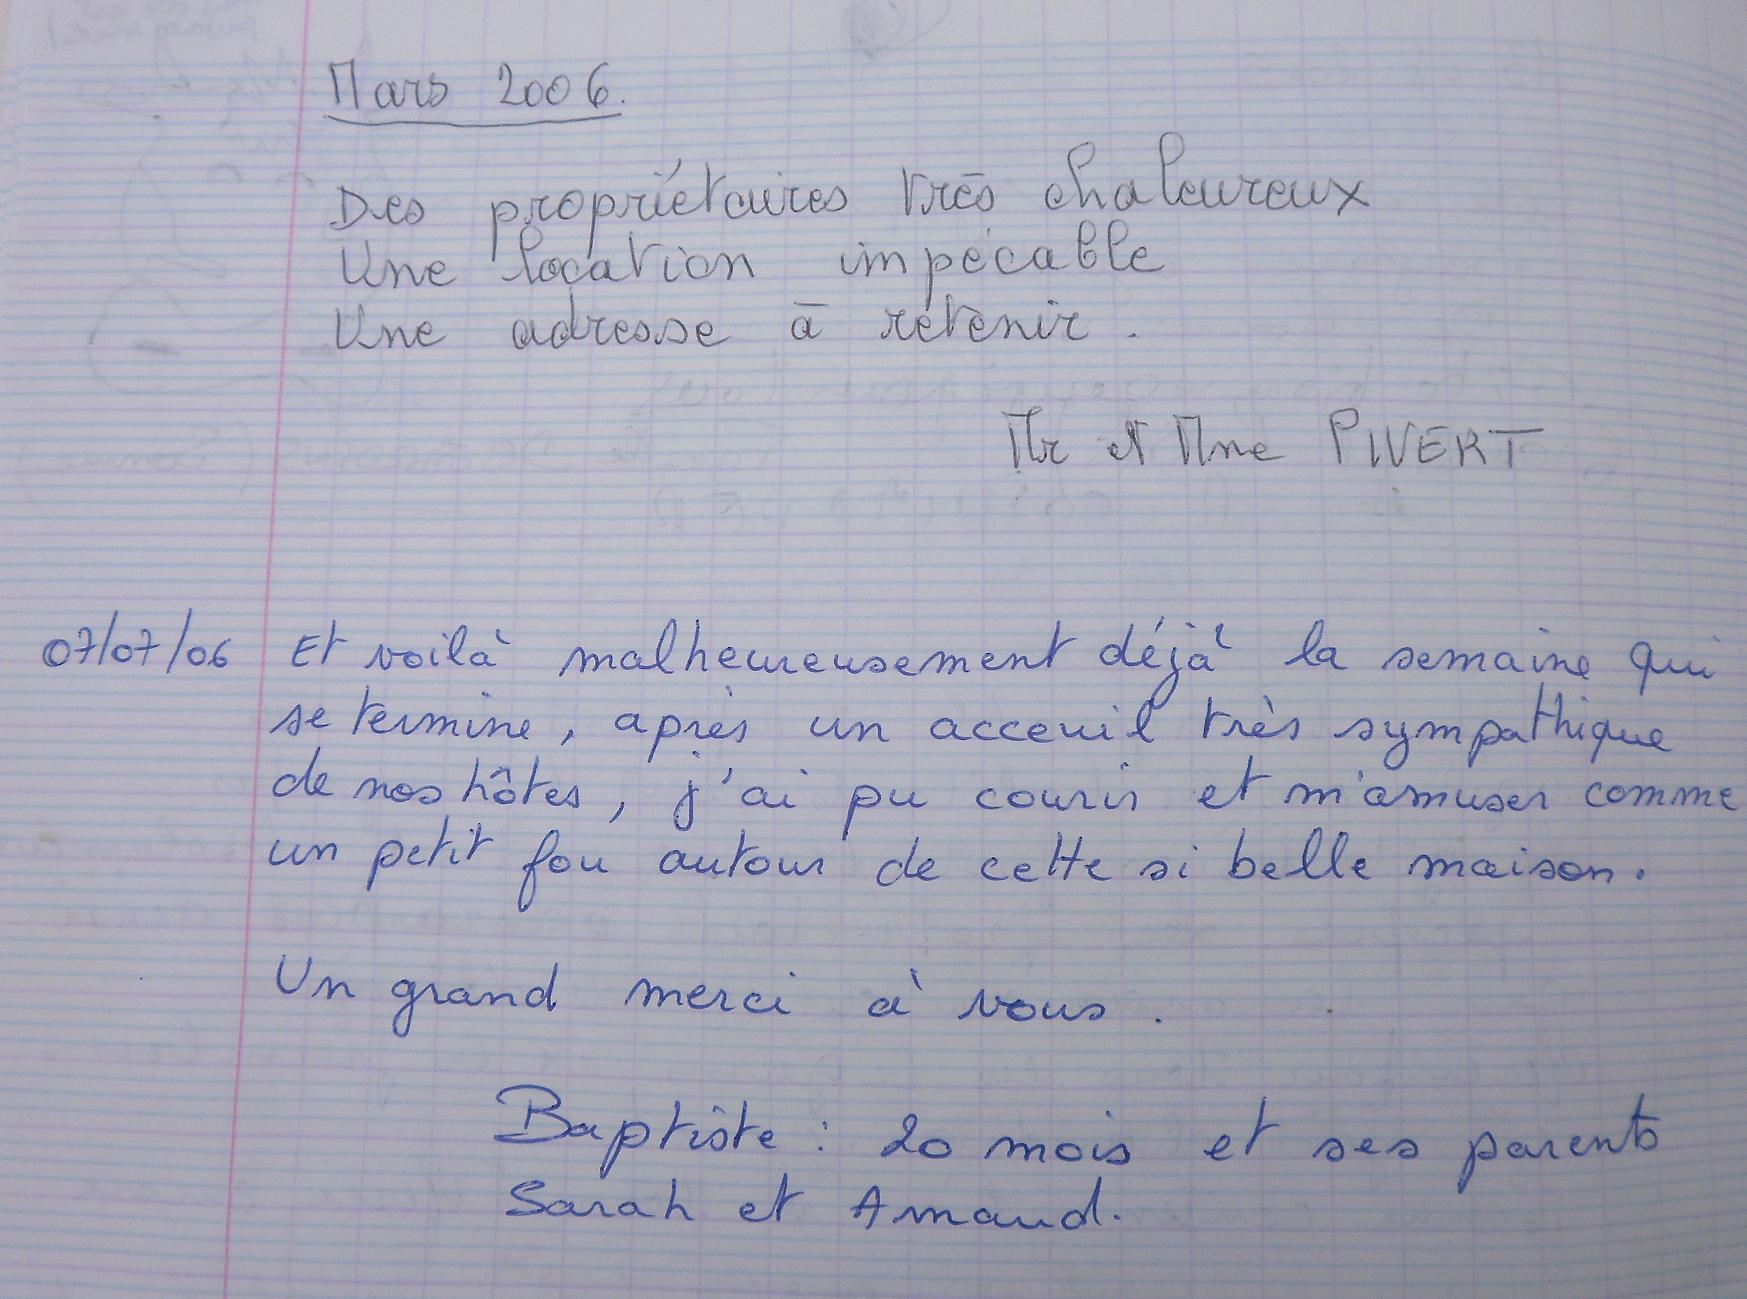 Mars 2006.
Des propriétaires très chaleureux
Une location impécable
Une adresse à retenir.
Mr et Mme PIVERT
07/07/06 Et voilà malheureusement déjà la semaine qui
se termine, après un acceuil très sympathique
de nos hôtes, j'ai pu courir et m'amuser comme
un petit fou autour de cette si belle maison.
Un grand merci à vous.
Baptiste : 20 mois et ses parents
Sarah et Arnaud.